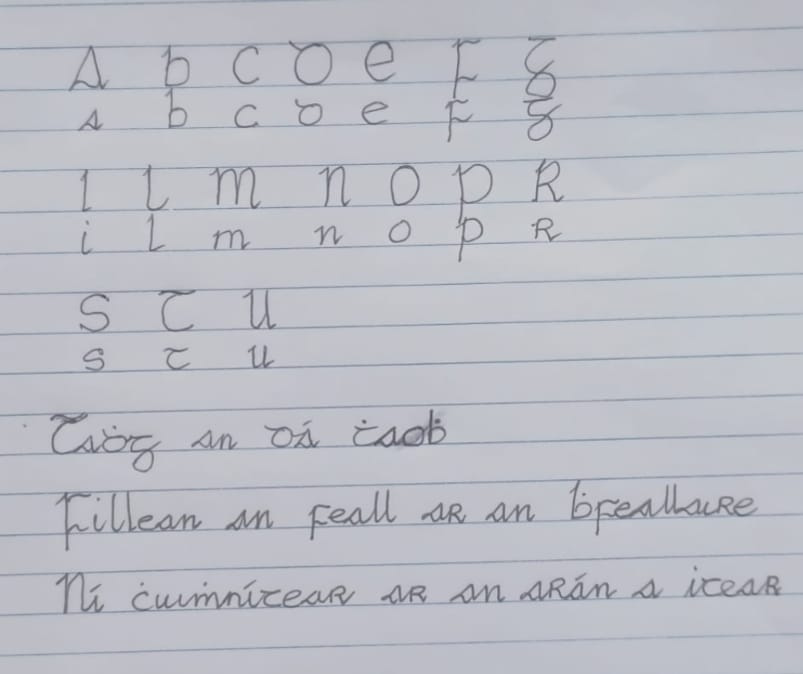 A B C D E F G
a b c d e f g
I L M N O P R
i l m n o p r
S T U
s t u
Taḋg an dá ṫaoḃ
Fillean an feall ar an ḃfeallaire
Ní ċuiṁnítear ar an arán a itear